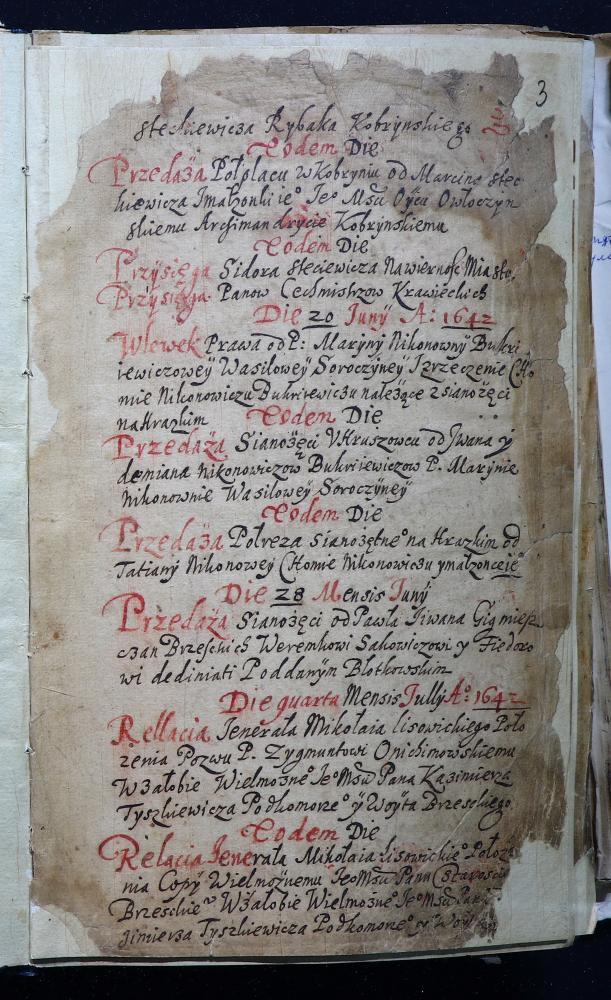 3
steckiewicza Rybaka Kobrynskiego
Eodem Die
Przedaża Połplacu w Kobryniu od Marcina Stec
kiewicza Jmałzonki ie° Je° Mśu Oycu Owłoczyn
skiemu Archimandrycie Kobrynskiemu
Eodem Die
Przysięga Sidora steciewicza Nawiernosc Miasto.
Przysięga Panow Cechmistrzow Krawieckich
Die 20 Juny A: 1642
Wlewek Prawa od P: Maryny Nikonowny Bukri
iewiczowey Wasilowey Soroczyney Jzrzeczenie Cho
mie Nikonowiczu Bukriiewiczu należące z sianożęci
na Hrazkim Eodem Die
Przedaża Sianożęci VHruszowcu od Jwana y
demiana Nikonowiczow Bukriiewiczow P. Marynie
Nikonownie Wasilowey Soroczyney
Eodem Die
Przedaża Połreza sianożętne° na Hrazkim od
Tatiany Nikonowey Chomie Nikonowiczu y małzonce ie°
Die 28 Mensis Juny
Przedaża Sianożęci od Pawła Jiwana Gig miesz
czan Brzeskich Weremkowi Sakowiczowi y Fiedoro
wi dediniati Poddanym Błotkowskim
Die quarta Mensis Jully A°: 1642
Rellacia Jenerała Mikołaia Lisowickiego Poło
żenia Pozwu P. Zygmuntowi Onichimowskiemu
W żałobie Wielmożne° Je°Mśu Pana Kazimierza
Tyszkiewicza Podkomorze° y Woyta Brzeskiego
Eodem Die
Relacia Jenerała Mikołaia Lisowickie° Położe
nia Copy Wielmożnemu Je°Mśu Panu Staroscie
Brzeskie W żałobie Wielmożne° Je°Mśu Pana
zimierza Tyszkiewicza Podkomorze° y Woy